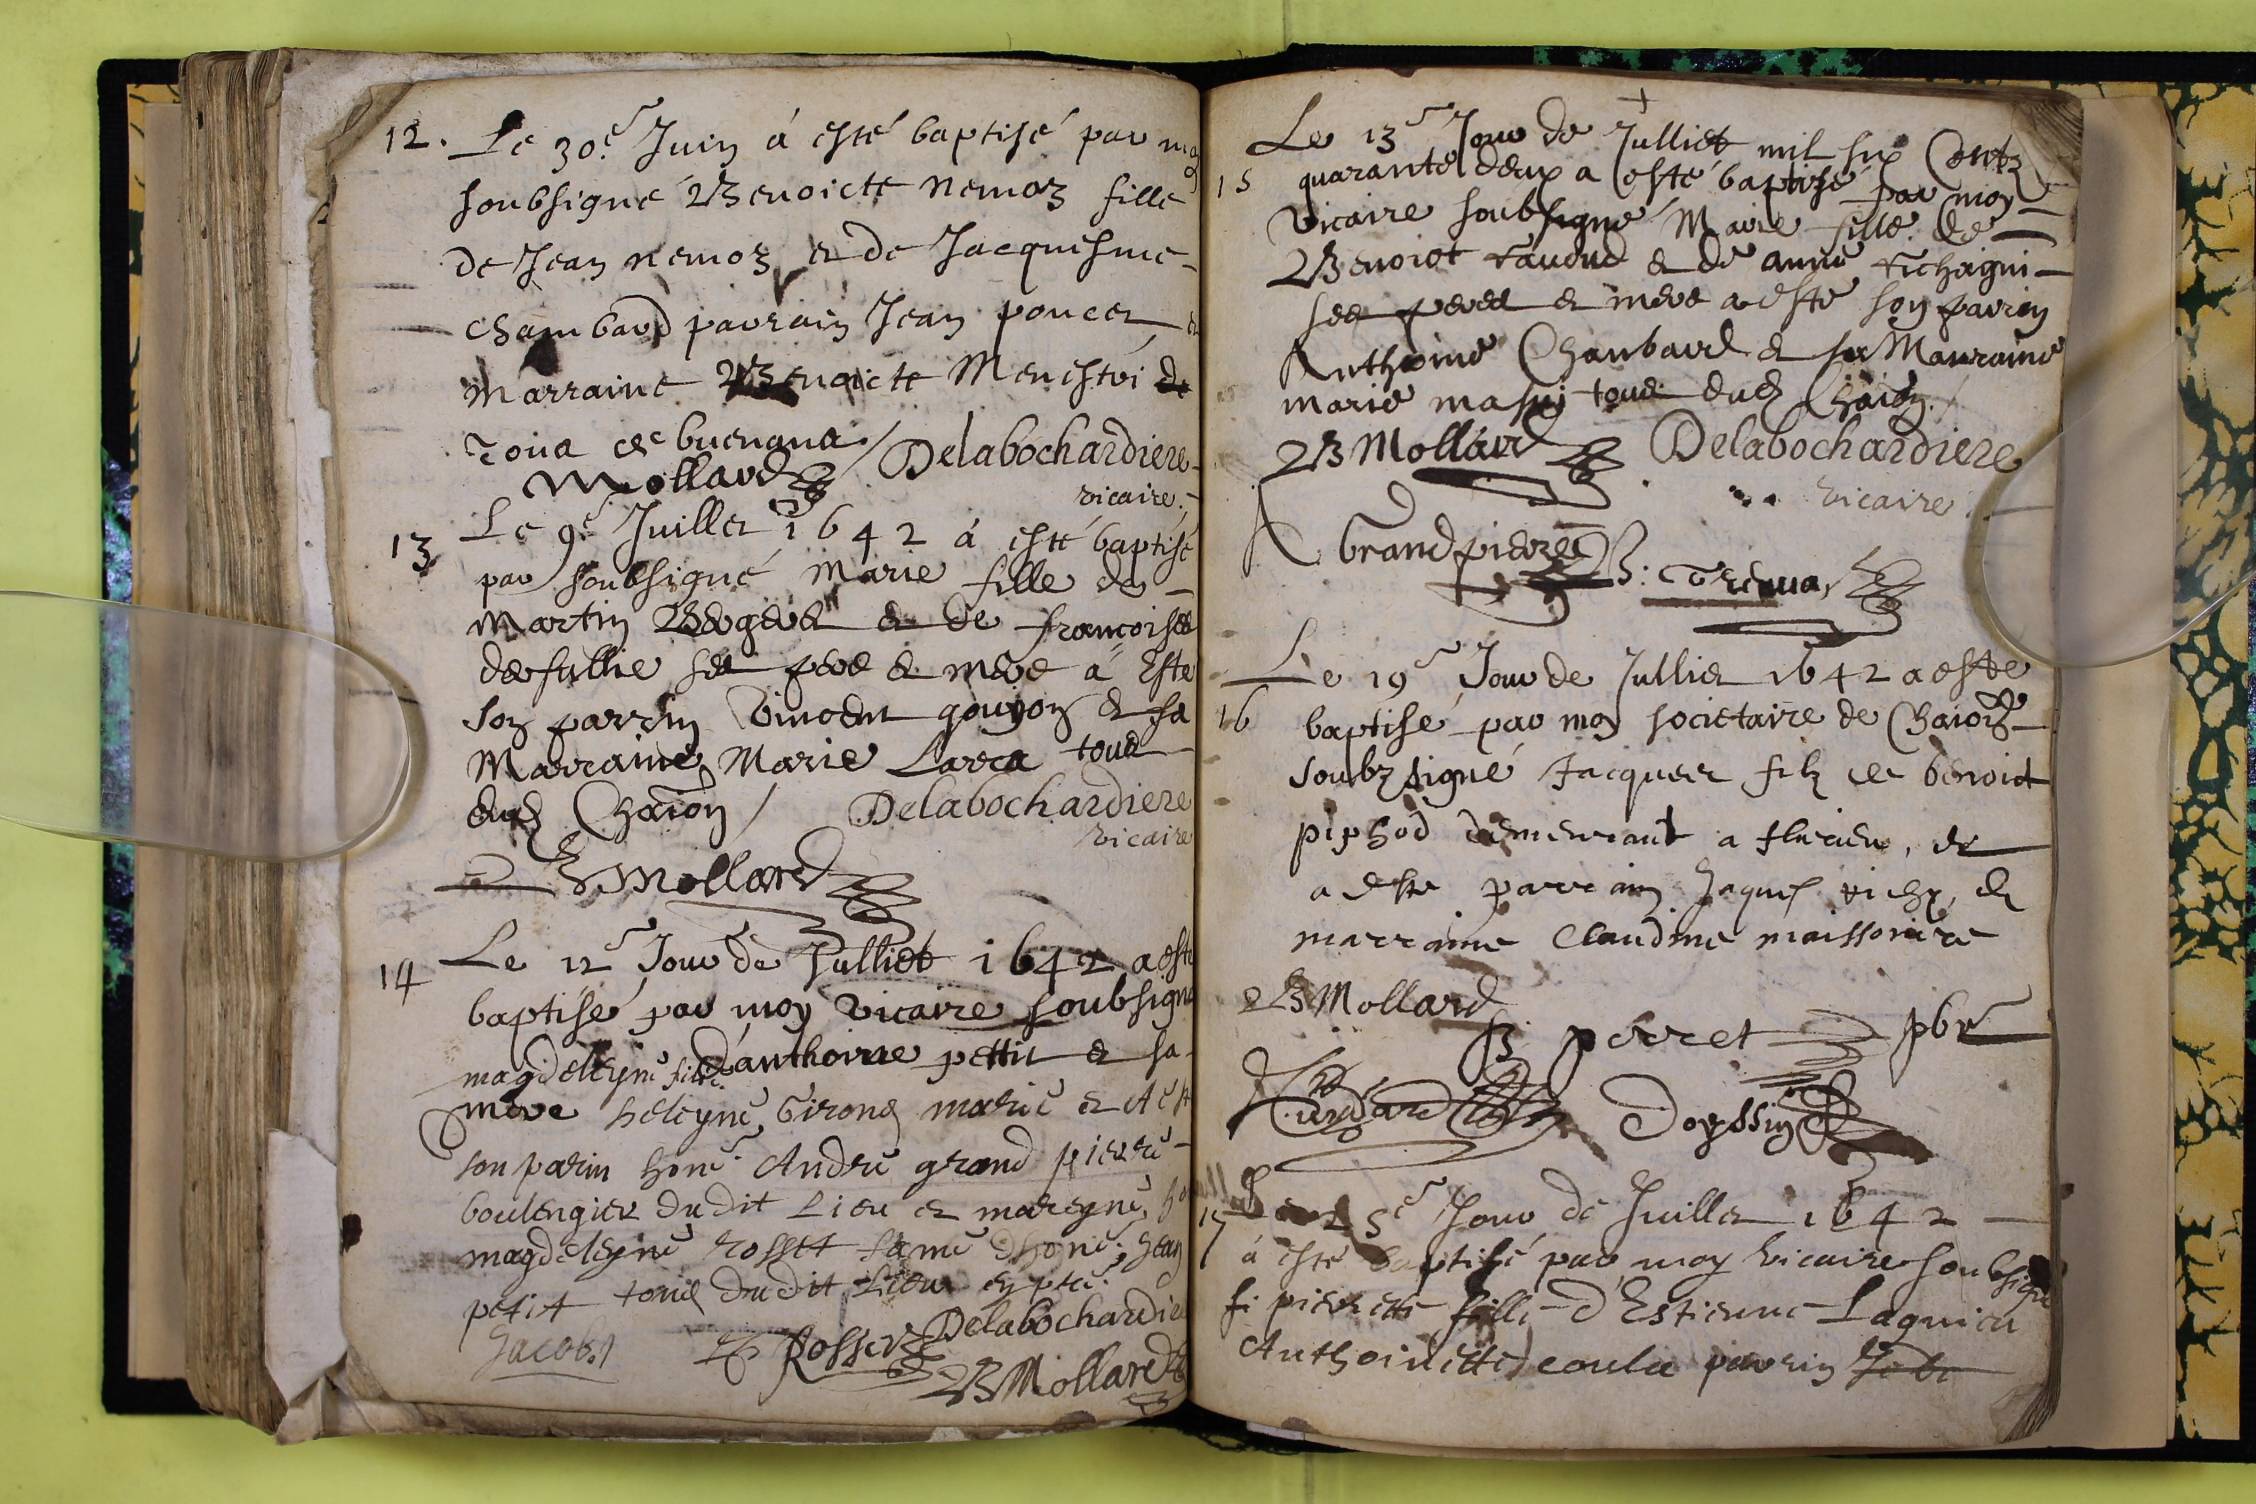 12. Le 30e Juin à esté baptisé par moy
soubsigné Benoicte nemoz fille
de Jean nemoz et de Jacquesme
chambard parrain Jean poncet et
marraine Benoicte Menestri de
Mollard Delabochardiere
vicaire.
13 Le 9e Juillet 1642 à esté baptisé
par soubsigné Marie fille de
Martin Berger et de françoise
ses pere et mere à Esté
son parrin Vincent goujon et sa
Marraine Marie Larra tous
dud Chaion / Delabochardiere
vicaire
B Mollard
14 Le 12e Jour de Julliet 1642 a esté
baptisé par moy vicaire soubsigné
magdeleyne fille d'anthoine pettit et sa
mere heleyne Girond marié et A est
son parin hone. André grand pierre
boulengier du dit Lieu et mareyne
magdeleyne rosset fame d'hone. Jean
petit tous du dit Lieu
Jacob Rosset Delabochardie
B Mollard
Le 13e Jour de Julliet mil six Centz
15 quarante deux a esté baptisé par moy
vicaire soubsigné Marie fille de
Benoict ravoud et de anne richagni
ses peres et mere a esté son parrin
Anthoine Chanbard et sa Marraine
marie masuj tous dud Chaion /
B Mollard Delabochardiere
vicaire
A Grandpierre
Le 19e Jour de Jullier 1642 a esté
16 baptisé par moy societaire de Chaion
soubz signé Jacques filz de benoict
piphod demeurant a flerieu, et
a esté parrain Jaques vichy, et
marraine Claudine maissoniere
B Mollard
B perret pbr
Doyssin
17 Le 25e Jour de Juillet 1642
à esté baptisé par moy vicaire soubsigné
pierrette fille d'Estienne Lagnieu
Anthoinette coulie parrin